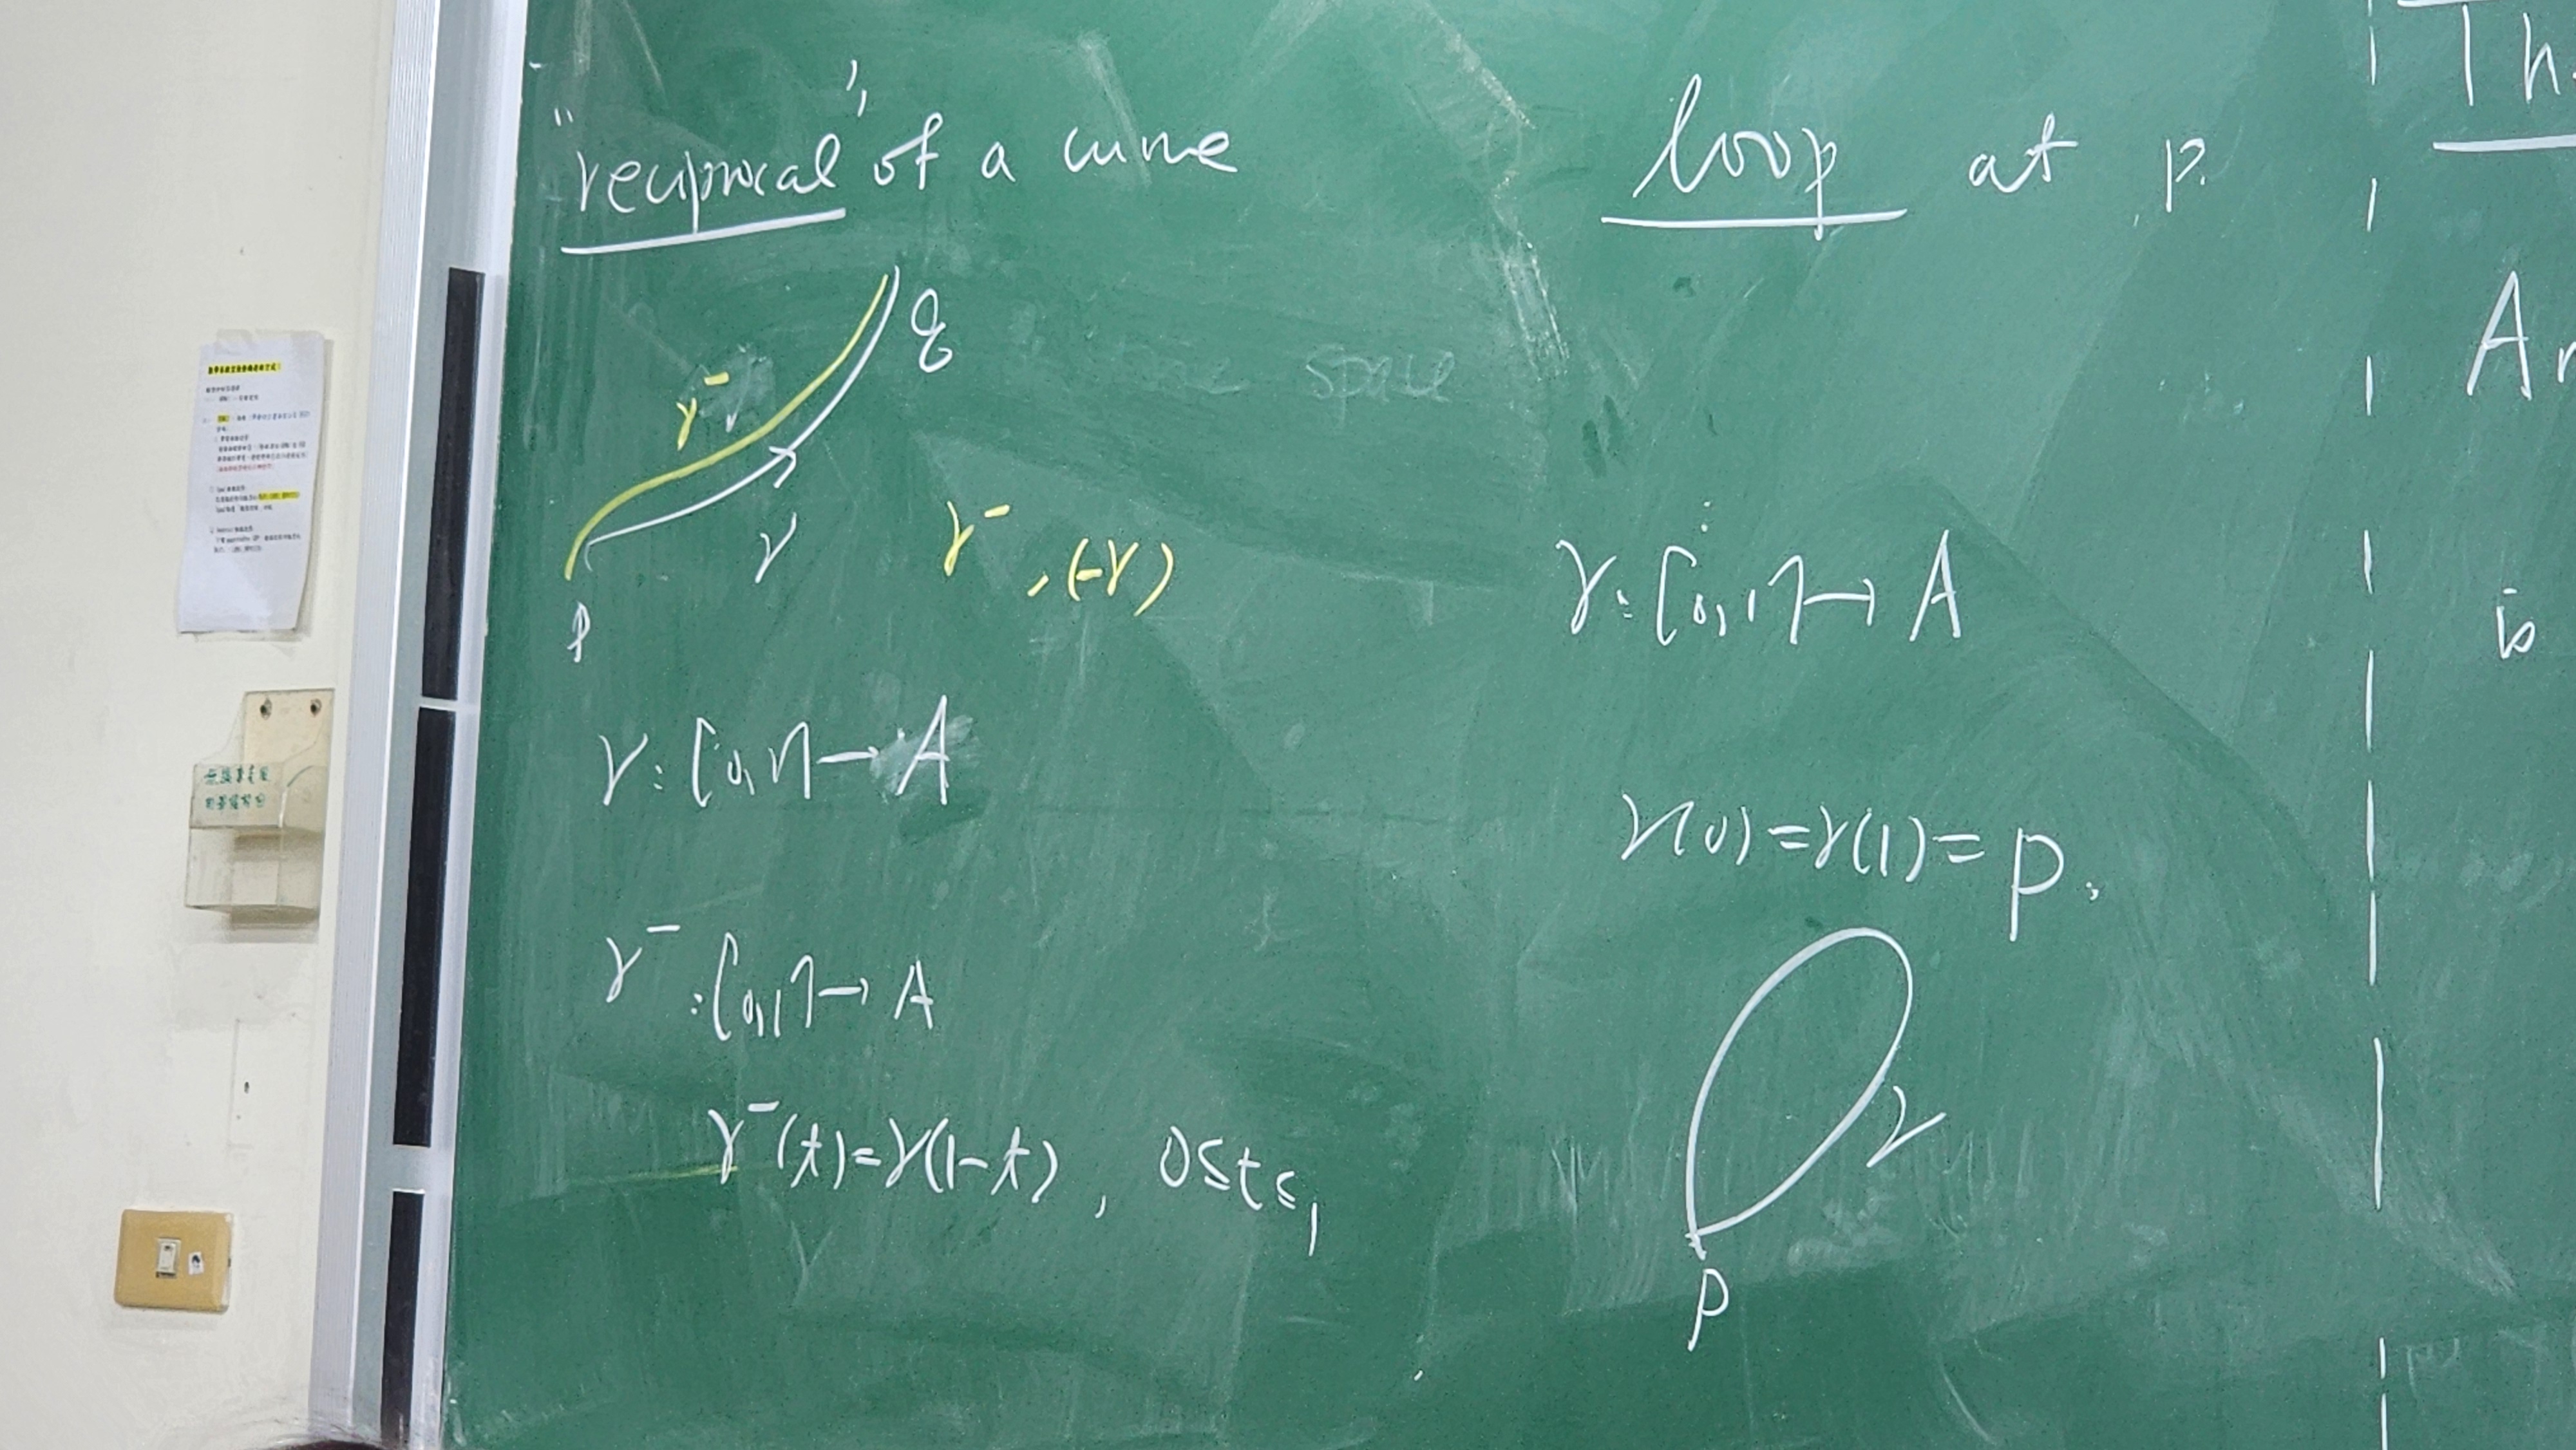 "reciprocal" of a curve
q
γ⁻
γ
γ⁻, (-γ)
p
γ: [0,1] → A
γ⁻: [0,1] → A
γ⁻(t)=γ(1-t), 0≤t≤1
loop at p.
space
γ: [0,1] → A
γ(0)=γ(1)=p.
γ
p
Th
A
is